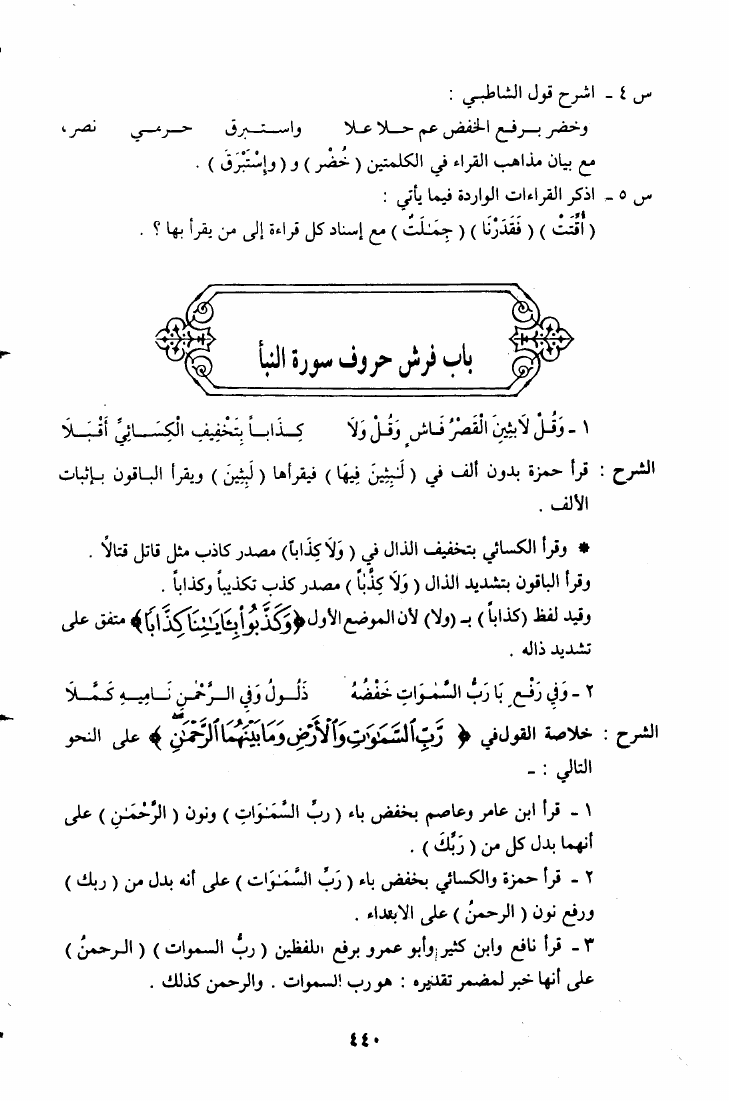 س ٤ ـ اشرح قول الشاطبي :
وخضر بــرفع الخفض عم حــلا علا واستــبرق حــرمــي نصر،
مع بيان مذاهب القراء في الكلمتين ( خُضْر ) و ( وإِسْتَبْرَقَ ) .
س ٥ ـ اذكر القراءات الواردة فيما يأتي :
( أُقِّتَتْ ) ( فَقَدَرْنَا ) ( جِمَـٰلَتٌ ) مع إسناد كل قراءة إلى من يقرأ بها ؟ .
باب فرش حروف سورة النبأ
١ ـ وَقُلْ لَابِثِينَ الْقَصْرُ فَـاشٍ وَقُلْ وَلَا كِــذَابــاً بِتَخْفِيفِ الْكِسَــائِيِّ أَقْبَــلَا
الشرح : قرأ حمزة بدون ألف في ( لَـٰبِثِينَ فِيهَا ) فيقرأها ( لَبِثِينَ ) ويقرأ الباقون بإثبات
الألف .
* وقرأ الكسائي بتخفيف الذال في ( وَلَا كِذَاباً) مصدر كاذب مثل قاتل قتالاً .
وقرأ الباقون بتشديد الذال ( وَلَا كِذَّٰباً ) مصدر كذب تكذيباً وكذاباً .
وقيد لفظ (كذاباً ) بـ (ولا) لأن الموضع الأول ﴿وَكَذَّبُوا۟ بِـَٔايَـٰتِنَا كِذَّابًا﴾ متفق على
تشديد ذاله .
٢ ـ وَفِي رَفْعِ بَا رَبُّ السَّمٰوَاتِ خَفْضُهُ ذَلُــولٌ وَفِي الــرَّحْمٰنِ نَــامِيــهِ كَمَّــلَا
الشرح : خلاصة القول في ﴿ رَّبِّ ٱلسَّمَـٰوَٰتِ وَٱلْأَرْضِ وَمَا بَيْنَهُمَا ٱلرَّحْمَـٰنِ ﴾ على النحو
التالي : ـ
١ ـ قرأ ابن عامر وعاصم بخفض باء ( ربِّ السَّمَـٰوَاتِ ) ونون ( الرَّحْمَـٰنِ ) على
أنهما بدل كل من ( رَبِّكَ ) .
٢ ـ قرأ حمزة والكسائي بخفض باء ( رَبِّ السَّمَـٰوَات ) على أنه بدل من ( ربك )
ورفع نون ( الرحمنُ ) على الابتداء .
٣ ـ قرأ نافع وابن كثير وأبو عمرو برفع اللفظين ( ربُّ السموات ) ( الرحمنُ )
على أنها خبر لمضمر تقديره : هو رب السموات . والرحمن كذلك .
٤٤٠